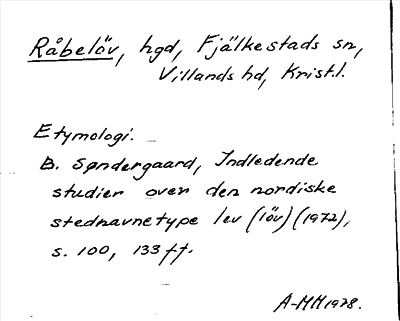 Råbelöv, hgd, Fjälkestads sn,
Villands hd, Krist.l.
Etymologi.
B. Søndergaard, Indledende
studier over den nordiske
stednavnetype lev (löv) (1972),
s. 100, 133 ff.
A-MH 1978.